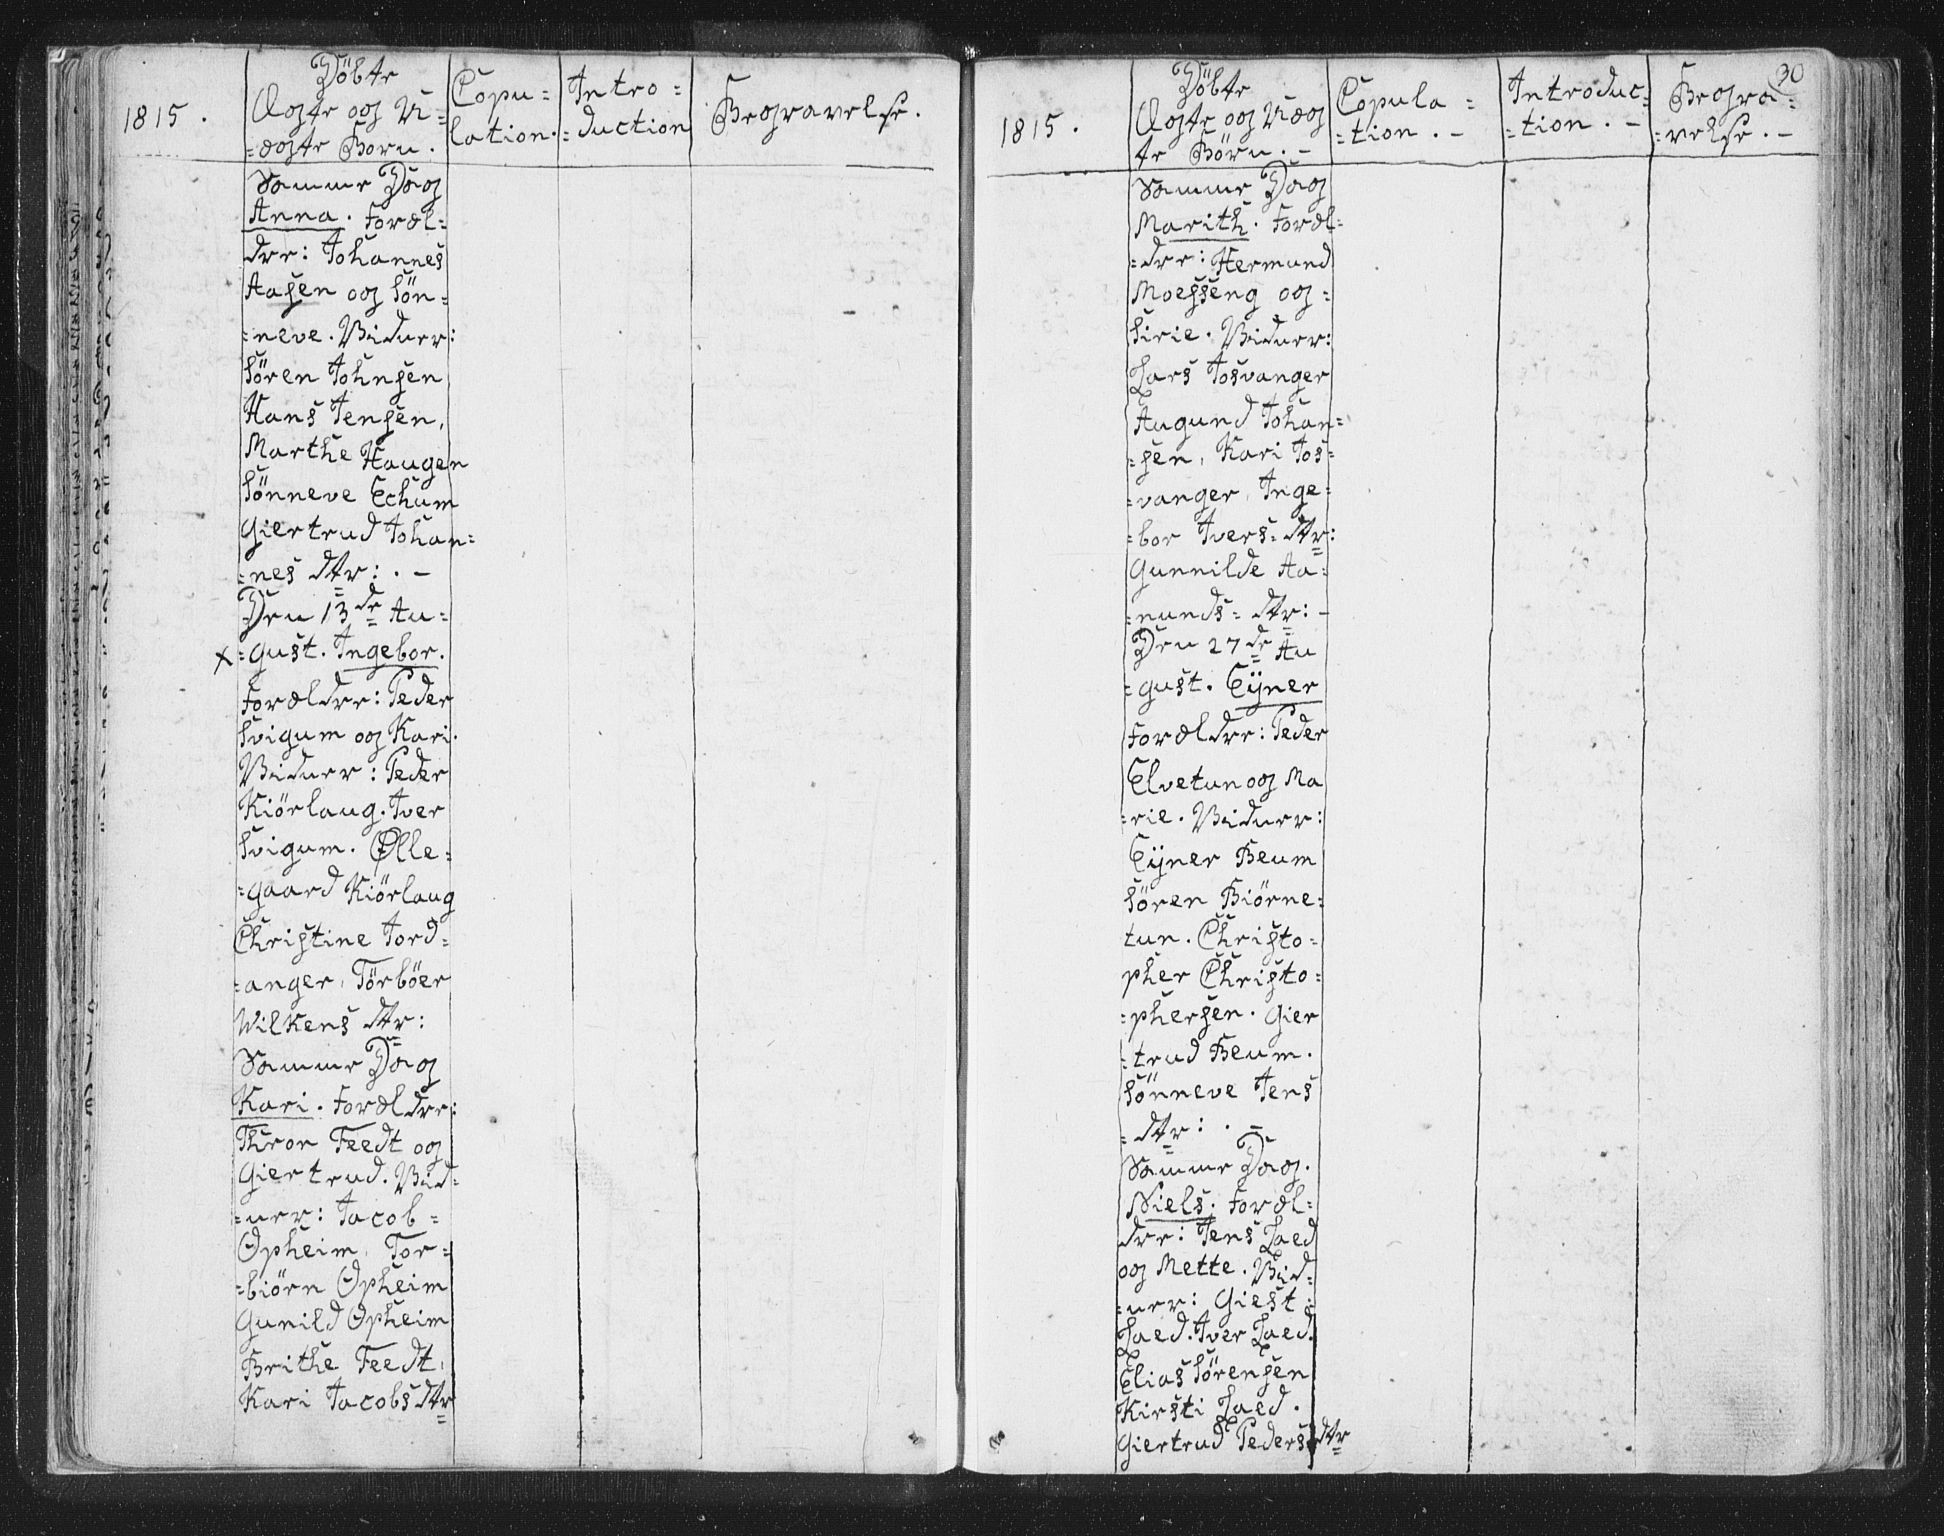 1815.
Döbte
Ægte og U=
=ægte Börn.
Copu=
lation.
Intro=
=duction
Begravelse.
Samme Dag
Anna. Foræl=
dre: Johannes
Aasen og Sön=
=neve. Vidner:
Sören Johnsen
Hans Jensen,
Marthe Haugen
Sönneve Echum
Giertrud Johan=
=nes dtr: . —
Den 13de Au=
x =gust. Ingebor.
Forældre: Peder
Svigum og Kari.
Vidner: Peder
Kiörlaug. Iver
Svigum. Olle=
=gaard Kiörlaug
Christine Jord=
=anger, Törböer
Wilkens dtr:
Samme Dag
Kari. Forældre:
Thror Feedt og
Giertrud. Vid=
=ner: Jacob=
Opheim, Tor=
=biörn Opheim
Gunild Opheim
Brithe Feedt,
Kari Jacobs dtr
30
1815.
Döbte
Ægte og Uæg
te Börn. —
Copula=
=tion. —
Introduc=
=tion. —
Begra=
=velse. —
Samme Dag
Marith. Foræl=
=dre: Hermund
Moesseng og=
Sirie. Vidner:
Lars Josvanger
Augund Johan=
=sen, Kari Jos=
=vanger, Inge=
=bor Ivers= dtr:
Gunnilde Aa=
=nunds= dtr: —
Den 27de Au
=gust. Eÿner
Forældre: Peder
Elvetun og Ma
=rie. Vidner:
Eÿner Beum
Sören Biörne=
tun. Christo=
pher Christo=
=phersen. Gier
=trud Beum.
Sönneve Jens
=dtr: . —
Samme Dag.
Niels. Foræl=
dre: Jens Laed
og Mette. Vid=
=ner: Giest
Laed. Iver Laed.
Elias Sörensen
Kirsti Laed.
Giertrud Peders dtr